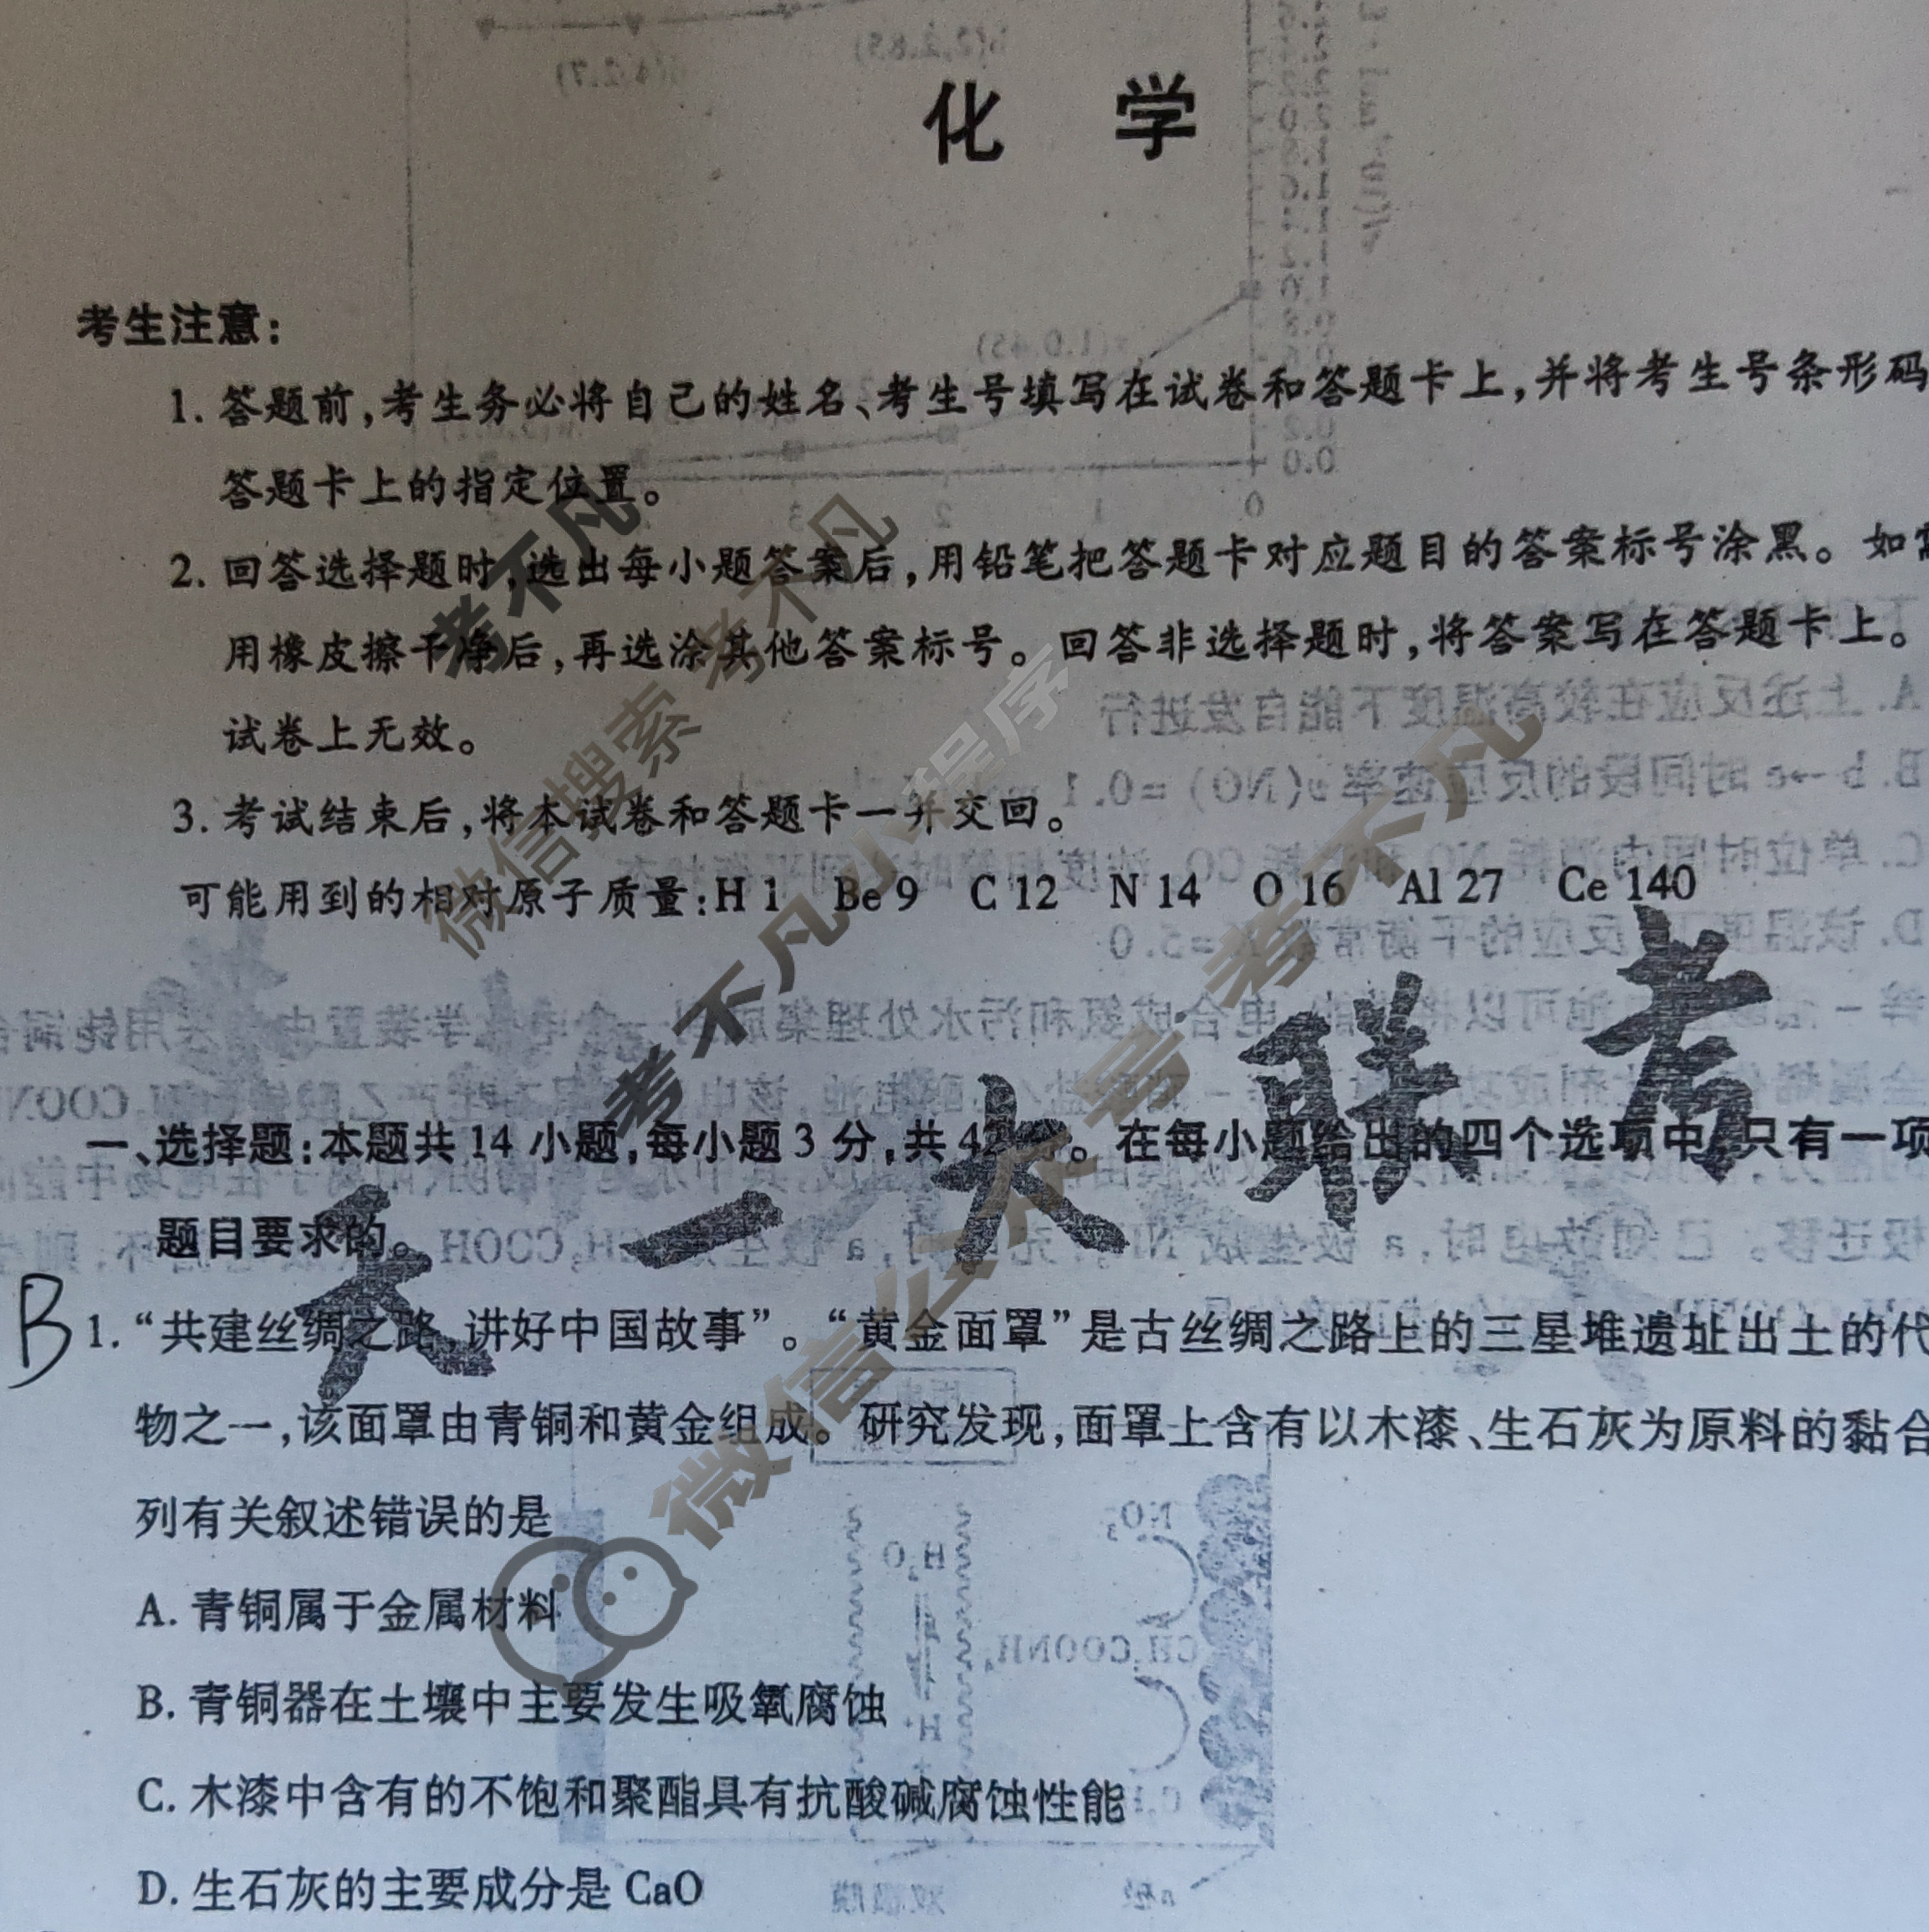 化 学
考生注意:
1. 答题前,考生务必将自己的姓名、考生号填写在试卷和答题卡上,并将考生号条形码
答题卡上的指定位置。
2. 回答选择题时,选出每小题答案后,用铅笔把答题卡对应题目的答案标号涂黑。如
用橡皮擦干净后,再选涂其他答案标号。回答非选择题时,将答案写在答题卡上。
试卷上无效。
3. 考试结束后,将本试卷和答题卡一并交回。
可能用到的相对原子质量:H 1 Be 9 C 12 N 14 O 16 Al 27 Ce 140
考不凡
微信搜索 考不凡
考不凡小程序
微信公众号:考不凡
天一大联考
一、选择题:本题共 14 小题,每小题 3 分,共 42 分。在每小题给出的四个选项中,只有一项
题目要求的。
B 1. “共建丝绸之路,讲好中国故事”。“黄金面罩”是古丝绸之路上的三星堆遗址出土的代
物之一,该面罩由青铜和黄金组成。研究发现,面罩上含有以木漆、生石灰为原料的黏合
列有关叙述错误的是
A. 青铜属于金属材料
B. 青铜器在土壤中主要发生吸氧腐蚀
C. 木漆中含有的不饱和聚酯具有抗酸碱腐蚀性能
D. 生石灰的主要成分是 CaO